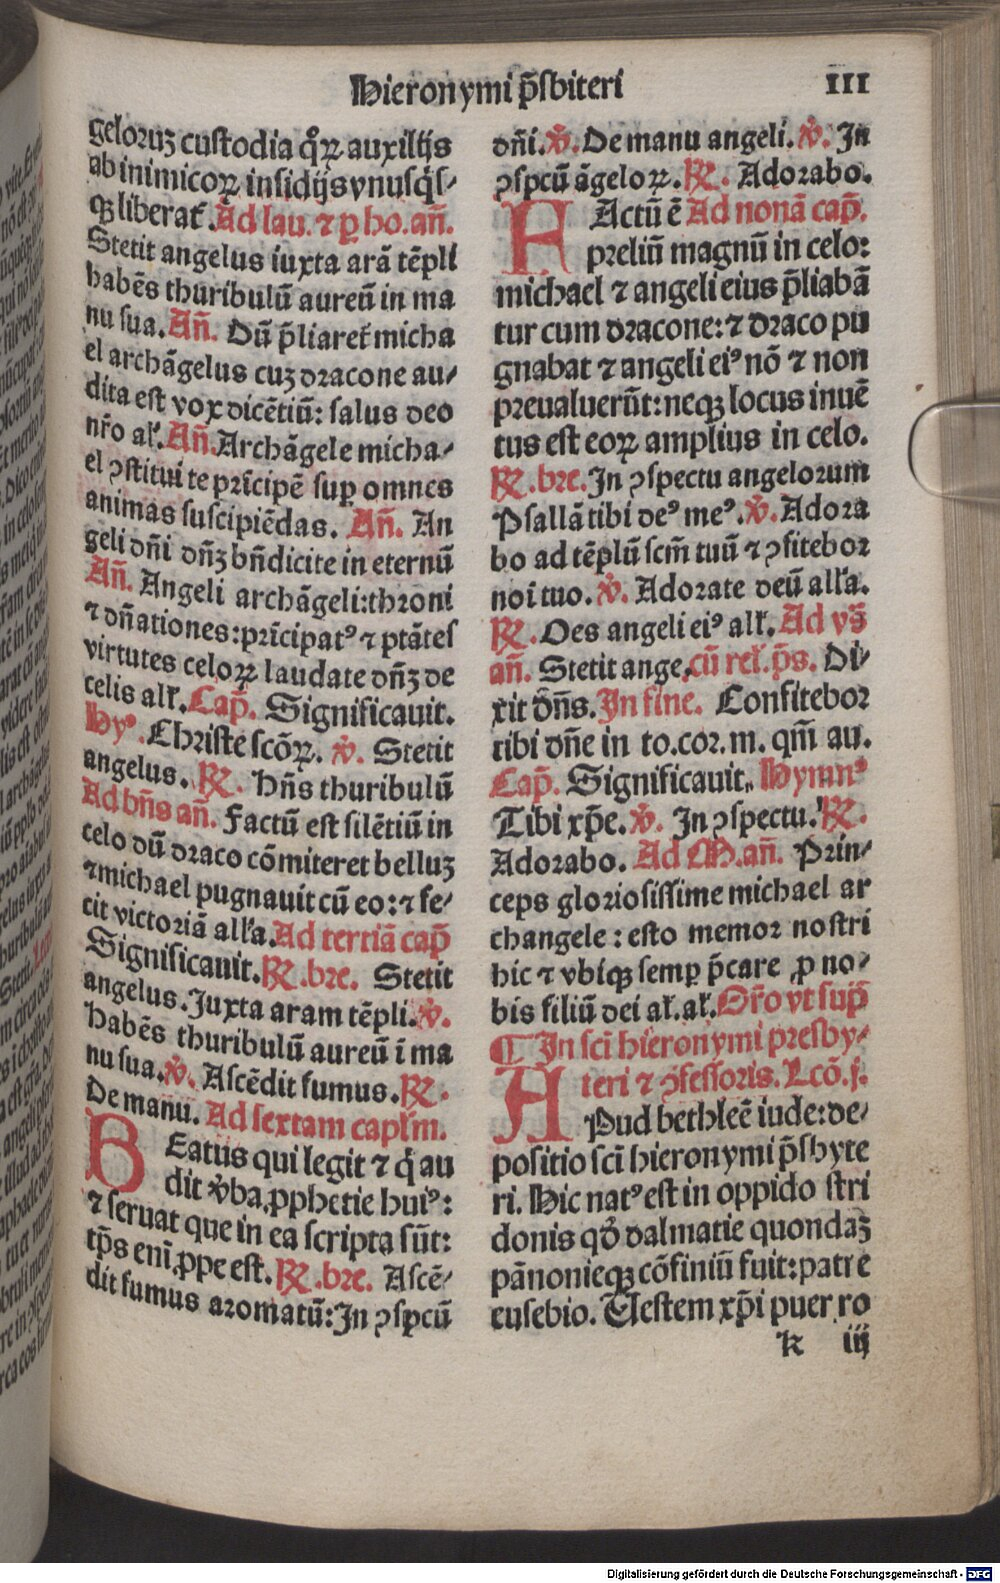 Hieronymi p̄sbiteri III
geloruꝫ custodia q̊ꝝ auxilijs
ab inimicoꝝ insidijs vnusq̇s⸗
qꝫ liberat᷑. Ad lau. ⁊ ꝑ ho. an̄.
Stetit angelus iuxta arā tēpli
habēs thuribulū aureū in ma
nu sua. An̄. Dū p̄liaret᷑ micha
el archāgelus cuꝫ dracone au⸗
dita est vox dicētiū: salus deo
nr̄o al'r. An̄. Archāgele micha⸗
el ꝯstitui te pr̄icipē suꝑ omnes
animās suscipiēdas. An̄. An
geli dn̄i dn̄ꝫ bn̄dicite in eternū
An̄. Angeli archāgeli: throni
⁊ dn̄ationes: pr̄icipatꝰ ⁊ ptātes
virtutes celoꝝ laudate dn̄ꝫ de
celis al'r. Cap̄. Significauit.
Hyꝰ. Christe scōꝝ. ℣. Stetit
angelus. ℟. Hn̄s thuribulū
Ad bn̄s an̄. Factū est silētiū in
celo dū draco cōmiteret belluꝫ
⁊ michael pugnauit cū eo: ⁊ fe⸗
cit victoriā all'a. Ad tertiā cap̄
Significauit. ℟. bre. Stetit
angelus. Juxta aram tēpli. ℣.
Habēs thuribulū aureū ī ma
nu sua. ℣. Ascēdit fumus. ℟.
De manu. Ad sextam capl'm.
BEatus qui legit ⁊ q̇ au
dit v̄ba ꝓphetie huiꝰ:
⁊ seruat que in ea scripta sūt:
tp̄s eniꝫ ꝓpe est. ℟. bre. Ascē⸗
dit fumus aromatū: In ꝯspcū
dn̄i. ℣. De manu angeli. ℣. In
ꝯspcū āgeloꝝ. ℟. Adorabo.
FActū ē Ad nonā cap̄.
preliū magnū in celo:
michael ⁊ angeli eius p̄liabā
tur cum dracone: ⁊ draco pu
gnabat ⁊ angeli eiꝰ nō ⁊ non
preualuerūt: neqꝫ locus inuē
tus est eoꝝ amplius in celo.
℟. bre. In ꝯspectu angelorum
Psallā tibi deꝰ meꝰ. ℣. Adora
bo ad tēplū scm̄ tuū ⁊ ꝯfitebor
noi tuo. ℣. Adorate deū all'a.
℟. Oes angeli eiꝰ al'r. Ad vs̄
an̄. Stetit ange. cū rel'. p̄s. Di⸗
xit dn̄s. In fine. Confitebor
tibi dn̄e in to. cor. m. qm̄ au.
Cap̄. Significauit. Hymnꝰ
Tibi xp̄e. ℣. In ꝯspectu. ℟.
Adorabo. Ad M. an̄. Prin⸗
ceps gloriosissime michael ar
changele: esto memor nostri
hic ⁊ vbiqꝫ semꝑ p̄care ꝓ no⸗
bis filiū dei al'. al'. Or̄o vt sup̄
¶ In sci̅ hieronymi presby⸗
teri ⁊ ꝯfessoris. Lcō. j.
APud bethleē iude: de⸗
positio sci̅ hieronymi p̄sbyte
ri. Hic natꝰ est in oppido stri
donis qd̕ dalmatie quondaꝫ
pānonieqꝫ cōfiniū fuit: patre
eusebio. Uestem xp̄i puer ro
k iij
Digitalisierung gefördert durch die Deutsche Forschungsgemeinschaft - DFG